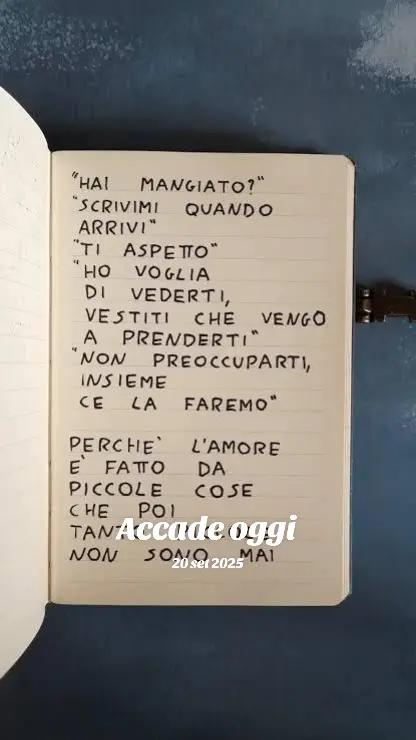 "HAI MANGIATO?"
"SCRIVIMI QUANDO
ARRIVI"
"TI ASPETTO"
"HO VOGLIA
DI VEDERTI,
VESTITI CHE VENGO
A PRENDERTI"
"NON PREOCCUPARTI,
INSIEME
CE LA FAREMO"
PERCHE` L'AMORE
E` FATTO DA
PICCOLE COSE
CHE POI
TANTO PICCOLE
Accade oggi
NON SONO MAI
20 set 2025